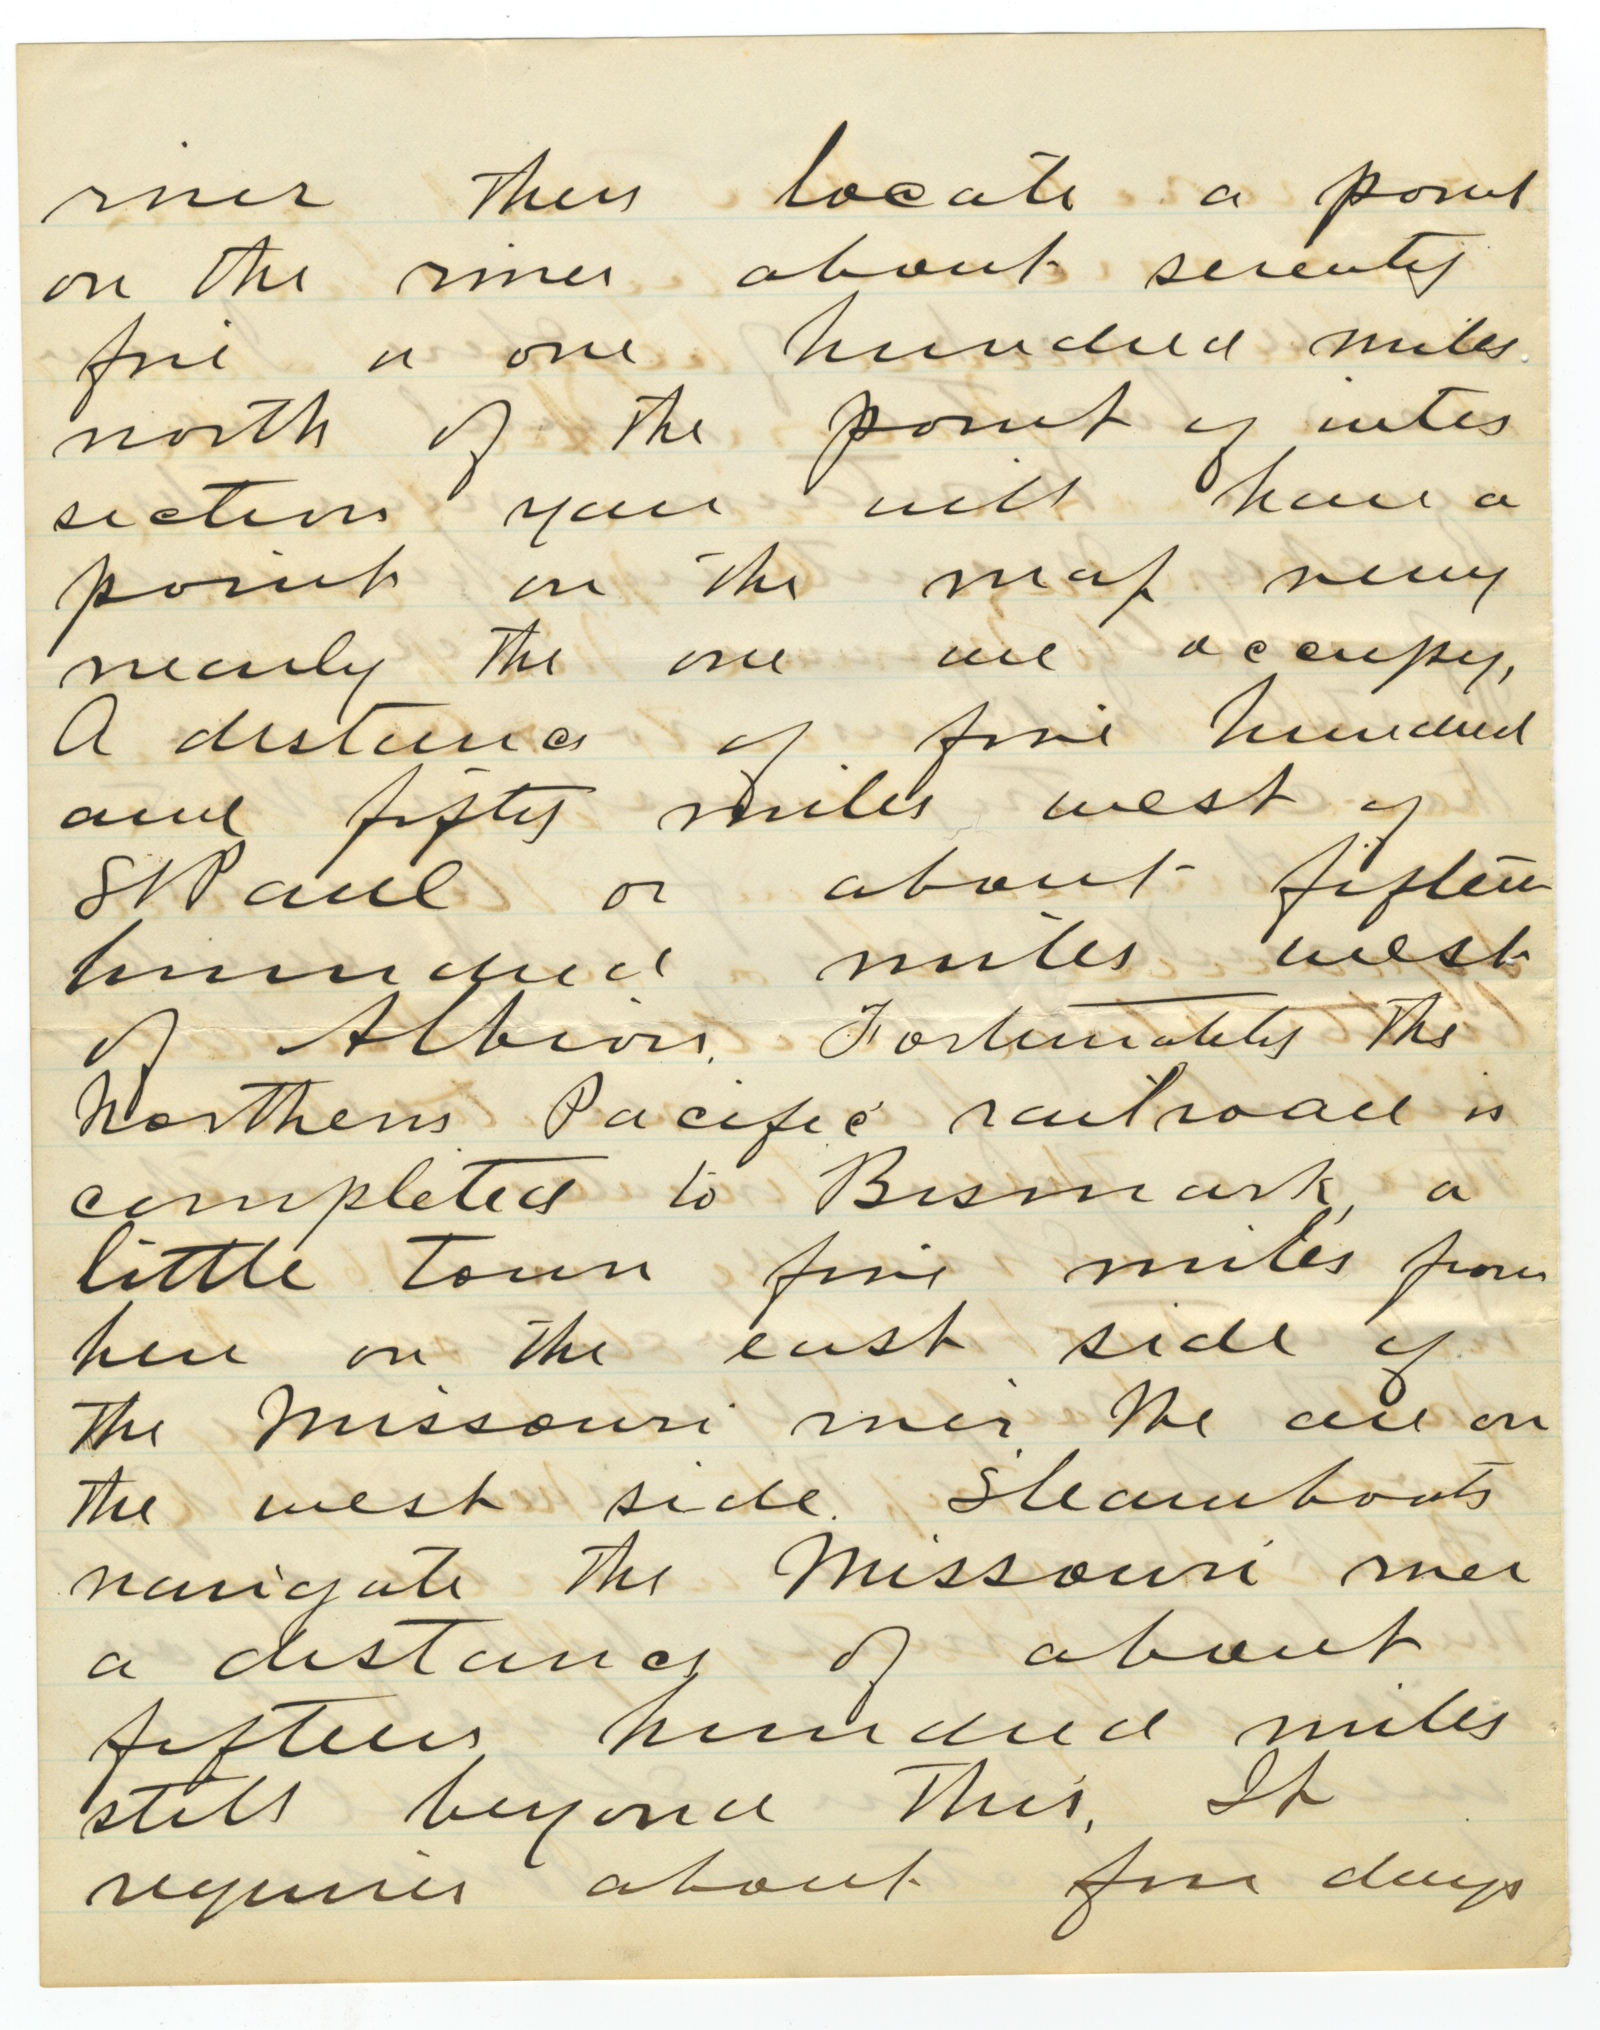 river then locate a point
on the river about seventy
five or one hundred miles
north of the point of inter
section you will have a
point on the map very
nearly the one we occupy,
A distance of five hundred
and fifty miles west of
St Paul or about fifteen
hundred miles west
of Albion. Fortunately the
Northern Pacific railroad is
completed to Bismark, a
little town five miles from
here on the east side of
the Missouri river We are on
the west side. Steamboats
navigate the Missouri river
a distance of about
fifteen hundred miles
still beyond this. It
requires about five days